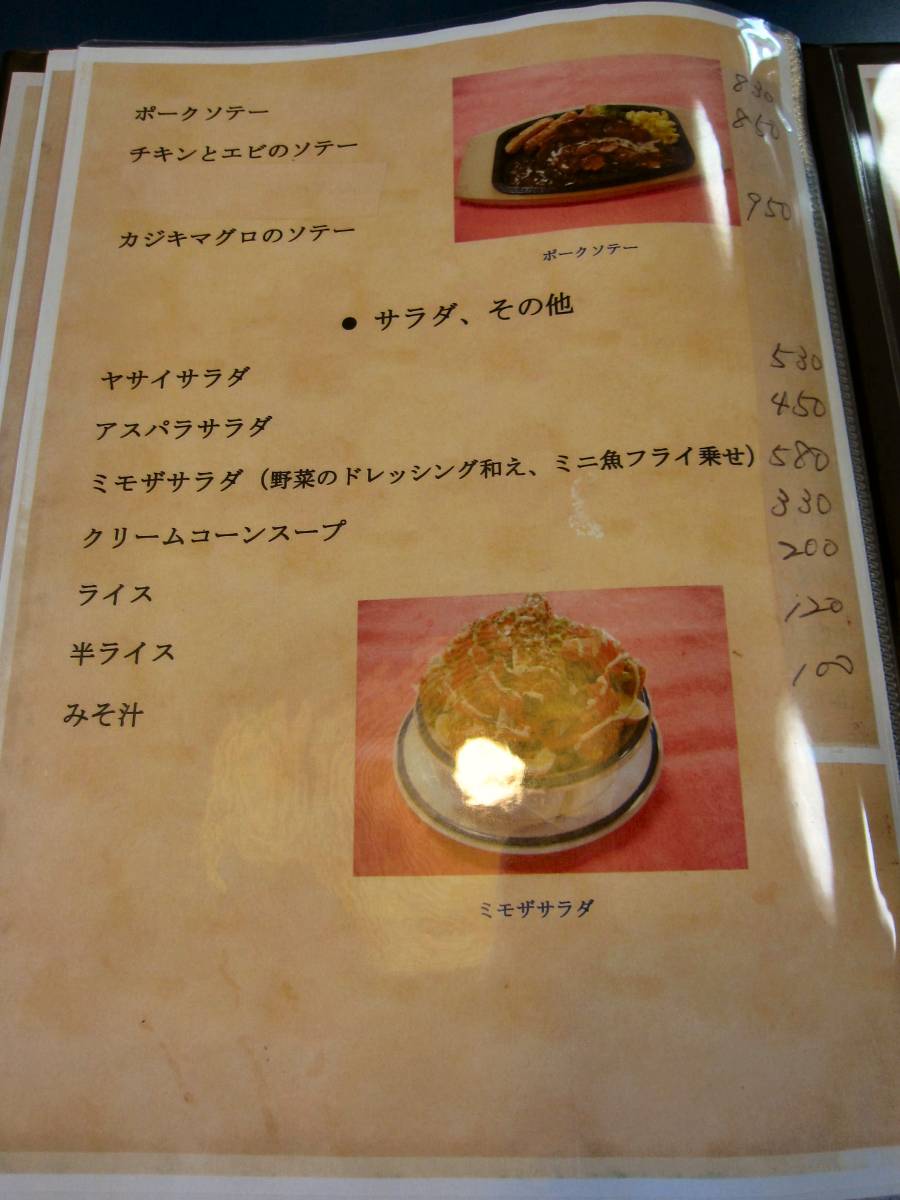 ポークソテー 830
チキンとエビのソテー 850
カジキマグロのソテー 950
ポークソテー
● サラダ、その他
ヤサイサラダ 530
アスパラサラダ 450
ミモザサラダ（野菜のドレッシング和え、ミニ魚フライ乗せ） 580
クリームコーンスープ 330
ライス 200
半ライス 120
みそ汁 100
ミモザサラダ